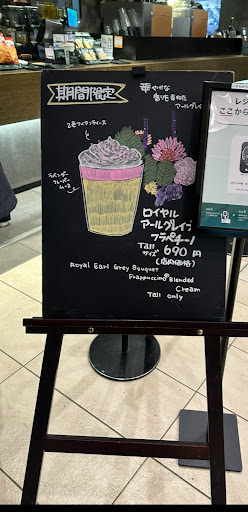 期間限定
華やかな
香りを重ねた
アールグレイ
2色フィアンティーヌ
ラベンダー
フレーバー
ムース
ロイヤル
アールグレイブーケ
フラペチーノ
Tall
サイズ 690円
(店内価格)
Royal Earl Grey Bouquet
Frappuccino Blended
Cream
Tall only
レジ
ここから